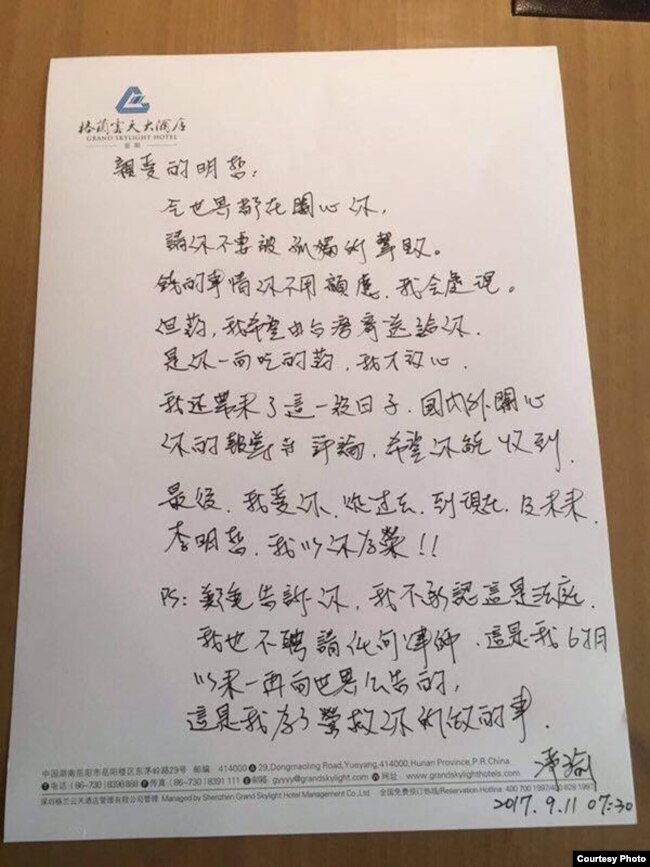 格蘭雲天大酒店
GRAND SKYLIGHT HOTEL
岳陽
親愛的明哲：
全世界都在關心你，
請你不要被孤獨所擊敗。
錢的事情你不用顧慮，我会處理。
但药，我希望由台湾寄送給你，
是你一向吃的药，我才放心。
我还帶來了這一段日子，國内外關心
你的報導与評論，希望你能收到。
最後，我愛你，從過去，到現在，及未來，
李明哲，我以你為榮!!
PS：難免告訴你，我不承認這是法庭，
我也不聘請任何律師，這是我6個月
以來一再向世界公告的，
這是我為了營救你所做的事。
淨瑜
2017.9.11 07:30
中国湖南岳阳市岳阳楼区东茅岭路29号 邮编 414000 29,Dongmaoling Road,Yueyang,414000,Hunan Province,P.R.China
电话(86-730)8396888 传真(86-730)8391 111 邮箱 gyyyy@grandskylight.com 网址 www.grandskylighthotels.com
深圳格兰云天酒店管理有限公司管理 Managed by Shenzhen Grand Skylight Hotel Management Co.,Ltd. 全国免费预订热线/Reservation Hotline 400 700 1997/400 828 1997
Courtesy Photo